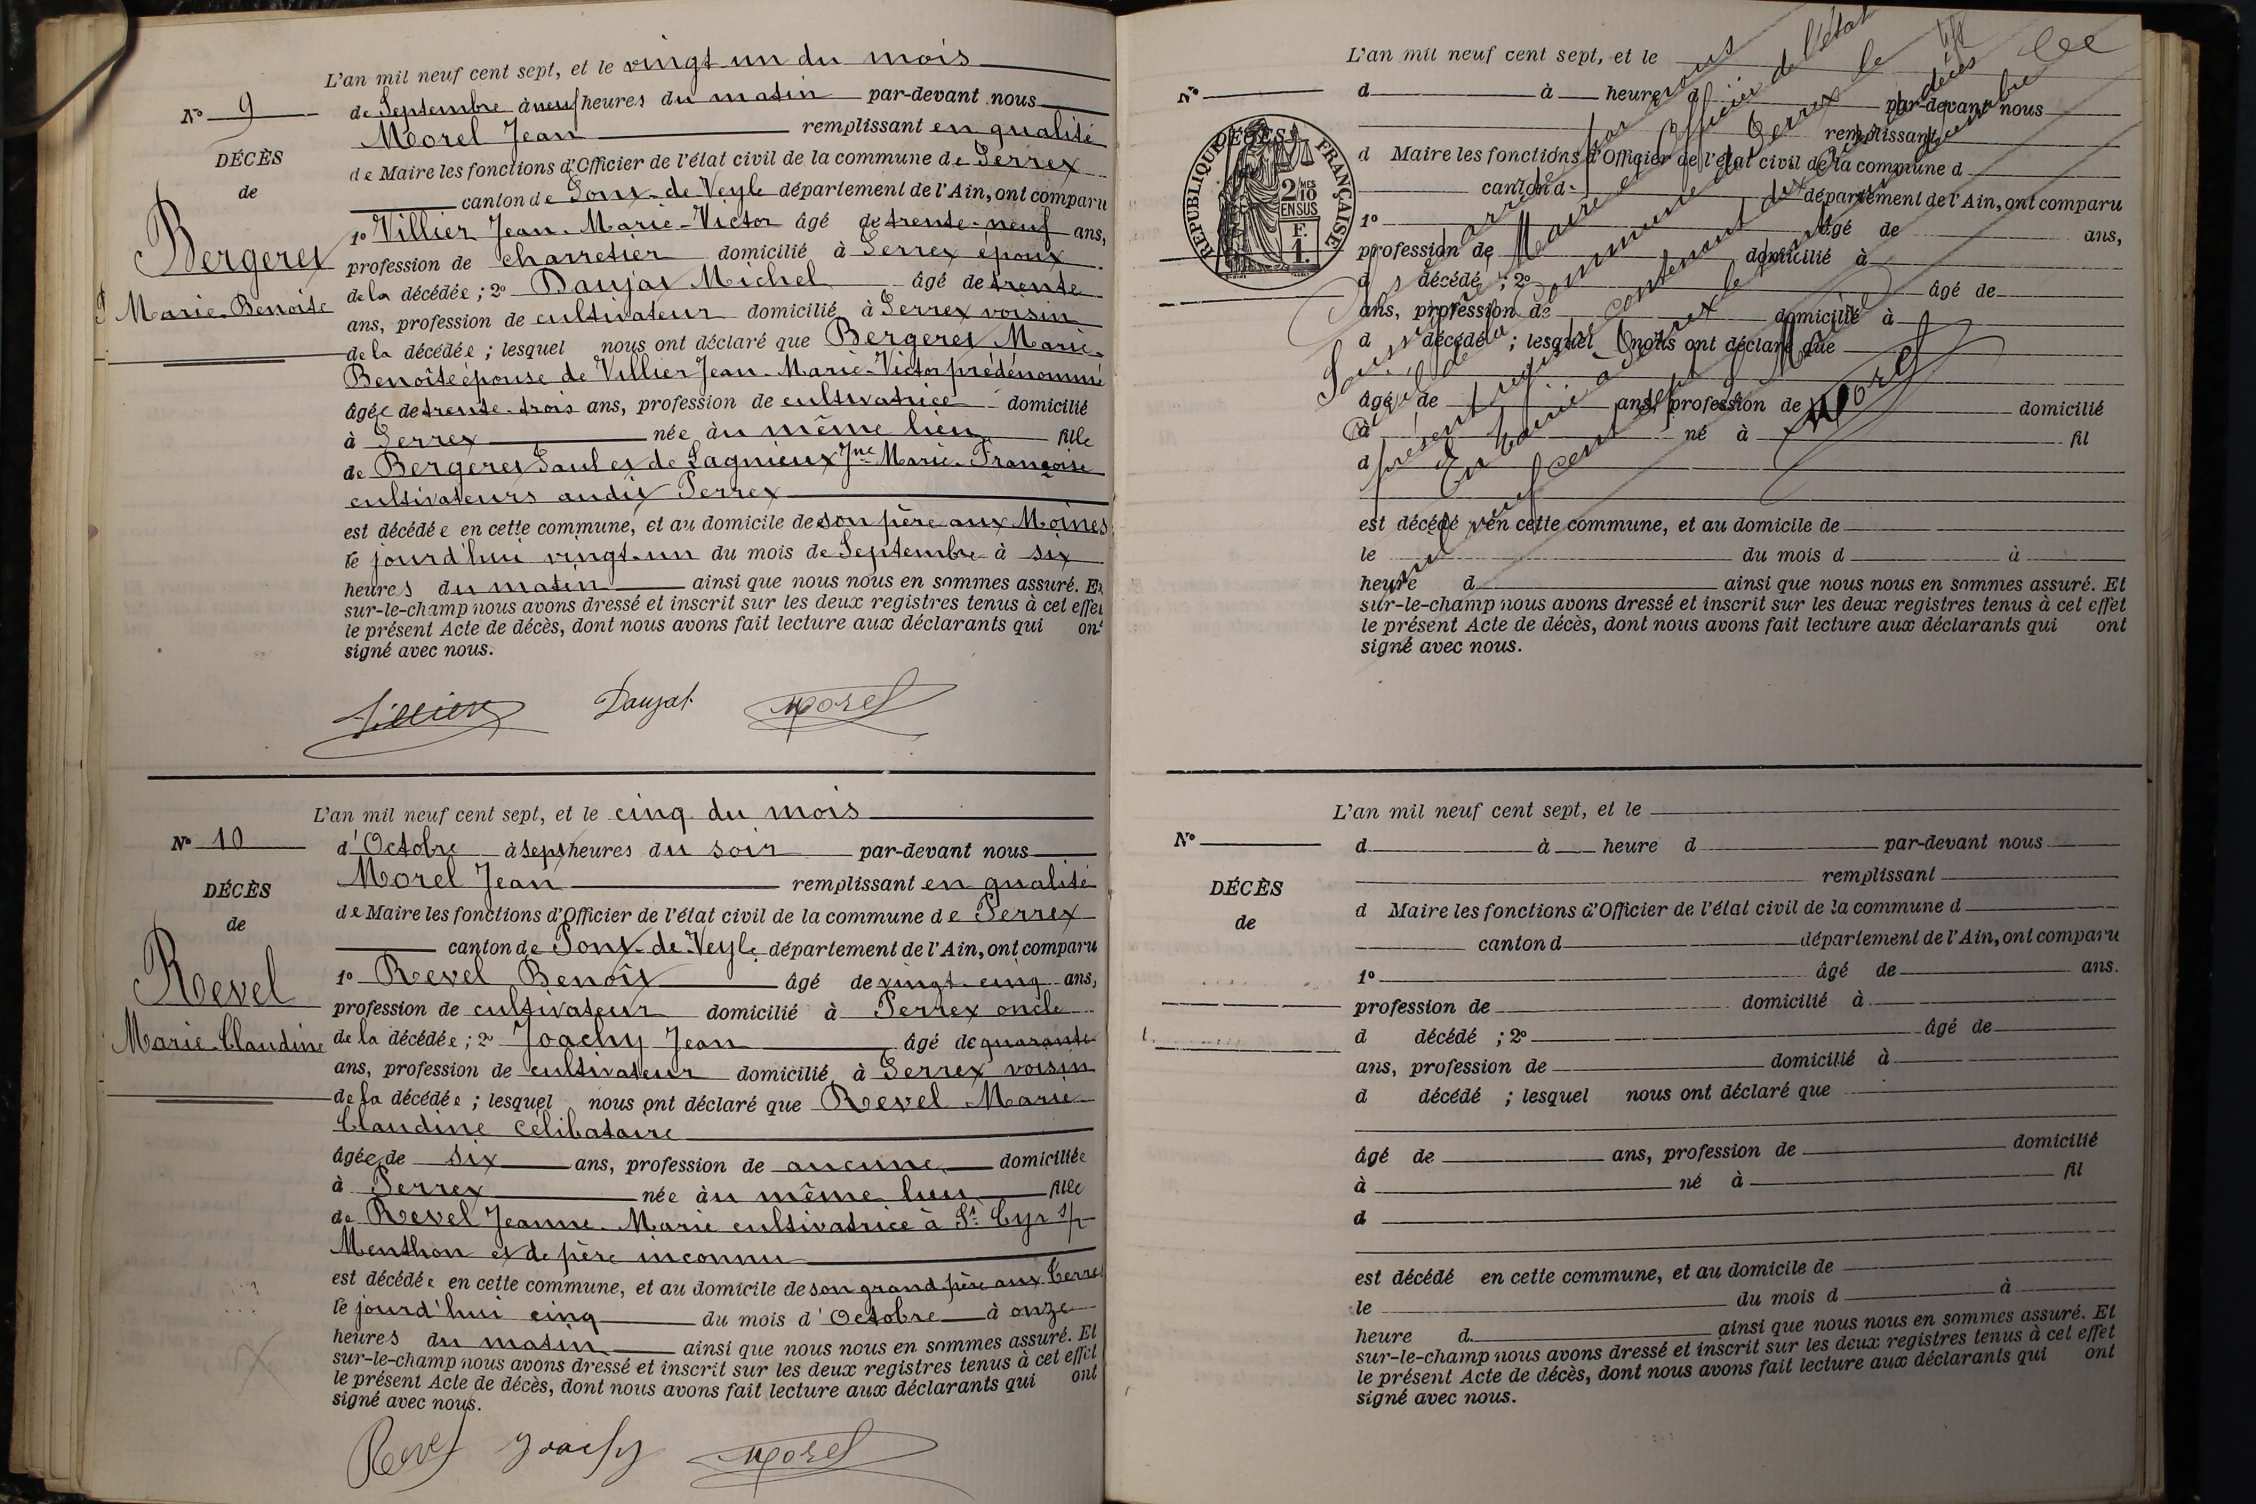 L'an mil neuf cent sept, et le vingt un du mois
N° 9
de Septembre à neuf heures du matin par-devant nous
Morel Jean remplissant en qualité
DÉCÈS
de Maire les fonctions d'Officier de l'état civil de la commune de Perrex
de
canton de Pont-de-Veyle département de l'Ain, ont comparu
Bergeret
Marie-Benoîte
1° Villier Jean-Marie-Victor âgé de trente-neuf ans,
profession de charretier domicilié à Perrex époux
de la décédée ; 2° Daujat Michel âgé de trente
ans, profession de cultivateur domicilié à Perrex voisin
de la décédée ; lesquel nous ont déclaré que Bergeret Marie-
Benoîte épouse de Villier Jean-Marie-Victor prédénommé
âgée de trente-trois ans, profession de cultivatrice domicilié
à Perrex née àu même lieu fille
de Bergeret Paul et de Lagnieux Jne Marie-Françoise
cultivateurs audit Perrex
est décédée en cette commune, et au domicile de son père aux Moines
le jourd'hui vingt-un du mois de Septembre à six
heures du matin ainsi que nous nous en sommes assuré. Et
sur-le-champ nous avons dressé et inscrit sur les deux registres tenus à cet effet
le présent Acte de décès, dont nous avons fait lecture aux déclarants qui ont
signé avec nous.
Villier Daujat Morel
L'an mil neuf cent sept, et le cinq du mois
N° 10
d'Octobre à sept heures du soir par-devant nous
Morel Jean remplissant en qualité
DÉCÈS
de Maire les fonctions d'Officier de l'état civil de la commune de Perrex
de
canton de Pont-de-Veyle département de l'Ain, ont comparu
Revel
Marie-Claudine
1° Revel Benoît âgé de vingt-cinq ans,
profession de cultivateur domicilié à Perrex oncle
de la décédée ; 2° Joachy Jean âgé de quarante
ans, profession de cultivateur domicilié à Perrex voisin
de la décédée ; lesquel nous ont déclaré que Revel Marie-
Claudine célibataire
âgée de six ans, profession de aucune domiciliée
à Perrex née àu même lieu fille
de Revel Jeanne-Marie cultivatrice à St Cyr s/-
Menthon et de père inconnu
est décédée en cette commune, et au domicile de son grand père aux Terres
le jourd'hui cinq du mois d'Octobre à onze
heures du matin ainsi que nous nous en sommes assuré. Et
sur-le-champ nous avons dressé et inscrit sur les deux registres tenus à cet effet
le présent Acte de décès, dont nous avons fait lecture aux déclarants qui ont
signé avec nous.
Revel Joachy Morel
L'an mil neuf cent sept, et le
N°
d à heure d par-devant nous
remplissant
DÉCÈS
RÉPUBLIQUE FRANÇAISE
2/10 MES EN SUS
F. 1.
d Maire les fonctions d'Officier de l'état civil de la commune d
canton d département de l'Ain, ont comparu
1° âgé de ans,
profession de domicilié à
d décédé ; 2° âgé de
ans, profession de domicilié à
d décédé ; lesquel nous ont déclaré que
âgé de ans, profession de domicilié
à né à fil
d
est décédé en cette commune, et au domicile de
le du mois d à
heure d ainsi que nous nous en sommes assuré. Et
sur-le-champ nous avons dressé et inscrit sur les deux registres tenus à cet effet
le présent Acte de décès, dont nous avons fait lecture aux déclarants qui ont
signé avec nous.
Clos et arrêté par nous
Maire et Officier de l'état
civil de la commune de Perrex le
présent registre contenant dix actes de décès
En Mairie à Perrex le trente un décembre
mil neuf cent sept
Le Maire
Morel
L'an mil neuf cent sept, et le
N°
d à heure d par-devant nous
remplissant
DÉCÈS
d Maire les fonctions d'Officier de l'état civil de la commune d
de
canton d département de l'Ain, ont comparu
1° âgé de ans.
profession de domicilié à
d décédé ; 2° âgé de
ans, profession de domicilié à
d décédé ; lesquel nous ont déclaré que
âgé de ans, profession de domicilié
à né à fil
d
est décédé en cette commune, et au domicile de
le du mois d à
heure d ainsi que nous nous en sommes assuré. Et
sur-le-champ nous avons dressé et inscrit sur les deux registres tenus à cet effet
le présent Acte de décès, dont nous avons fait lecture aux déclarants qui ont
signé avec nous.